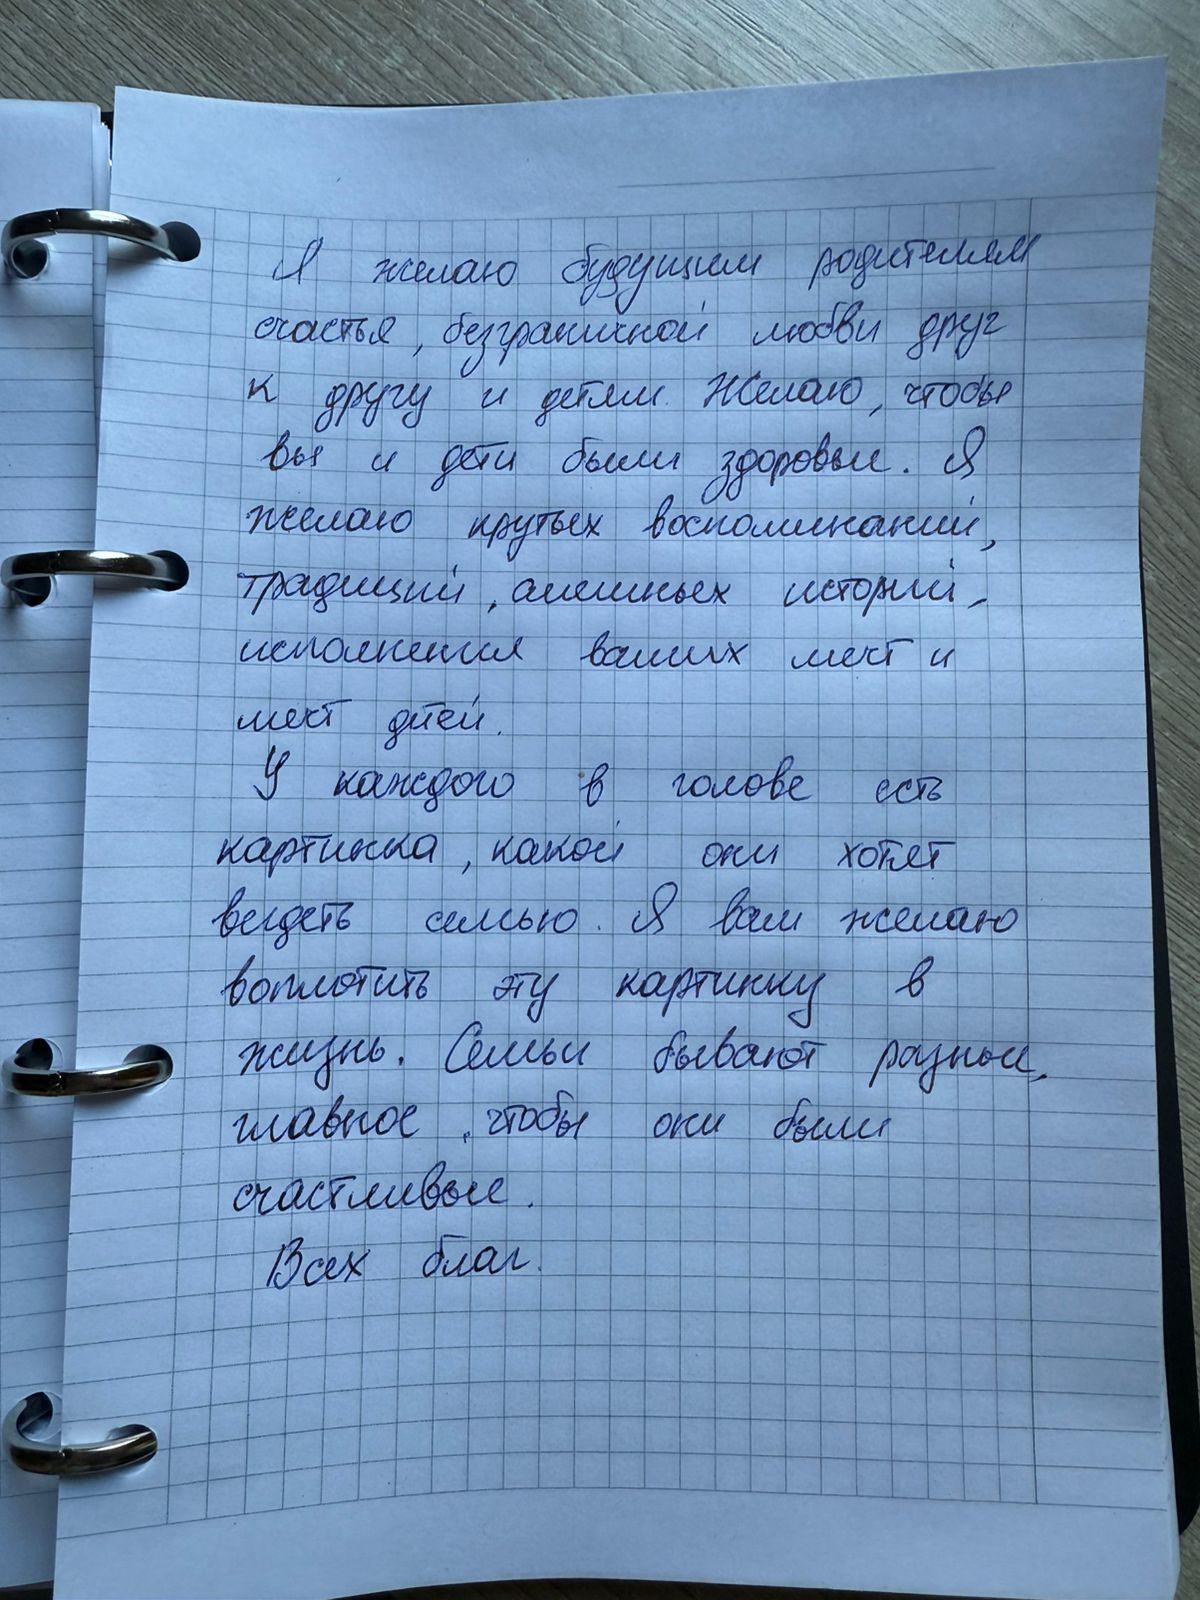 Я желаю будущим родителям
счастья, безграничной любви друг
к другу и детям. Желаю, чтобы
вы и дети были здоровы. Я
желаю крутых воспоминаний,
традиций, смешных историй,
исполнения ваших мечт и
мечт детей.
У каждого в голове есть
картинка, какой они хотят
видеть семью. Я вам желаю
воплотить эту картинку в
жизнь. Семьи бывают разные,
главное, чтобы они были
счастливые.
Всех благ.